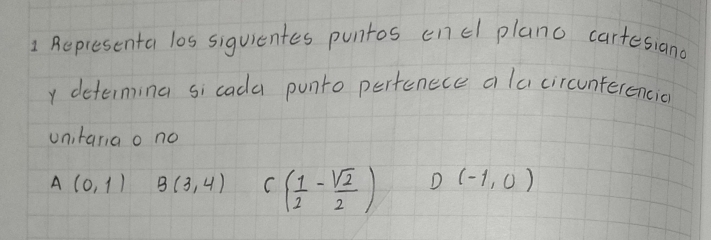 1 Representa los siguientes puntos en el plano cartesiano
y determina si cada punto pertenece a la circunferencia
unitaria o no
A (0,1) B(3,4) C (1/2 - √2/2) D (-1,0)